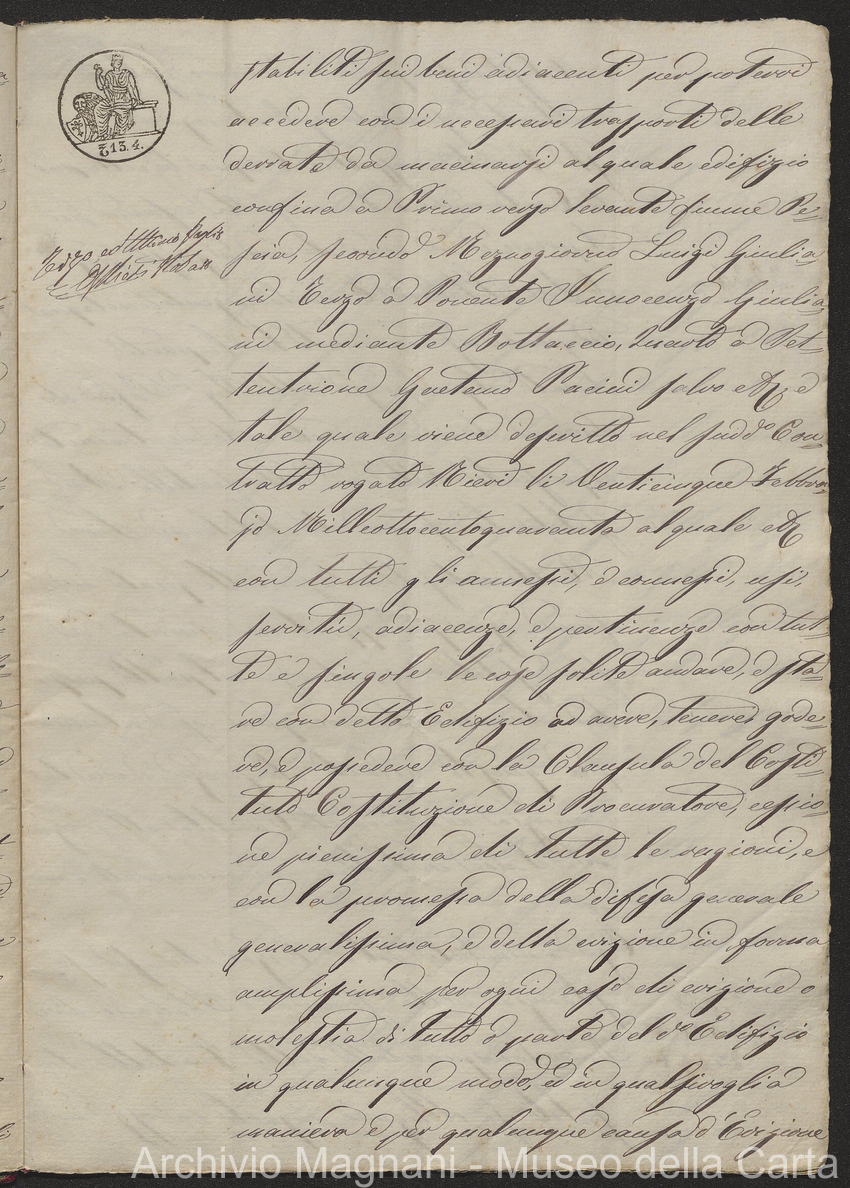 13. 4.
3o, ed Ultimo foglio
stabiliti sui beni adiacenti per potervi
accedere con i necessari trasporti delle
derrate da macinarsi al quale edifizio
confina a Primo verso levante fiume Pe=
scia, secondo Mezzogiorno Luigi Giulia=
ni Terzo a Ponente Innocenzo Giulia=
ni mediante Bottaccio, Quarto a Set=
tentrione Gaetano Pacini salvo &c e
tale quale viene descritto nel sudd.o Con=
tratto rogato Nieri li Venticinque Febbra=
jo Milleottocentoquaranta al quale &c
con tutti gli annessi, e connessi, usi,
servitù, adiacenze, e pertinenze con tut=
te e singole le cose solite andare, e sta=
re con detto Edifizio ad avere, tenere, gode=
re, e possedere con la Clausula del Costi=
tuto Costituzione di Procuratore, cessio=
ne pienissima di tutte le ragioni, e
con la promessa della difesa generale
generalissima, e della evizione in forma
amplissima per ogni caso di evizione o
molestia di tutto o parte del d.o Edifizio
in qualunque modo, ed in qualsivoglia
maniera e per qualunque causa d'Evizione
Archivio Magnani - Museo della Carta